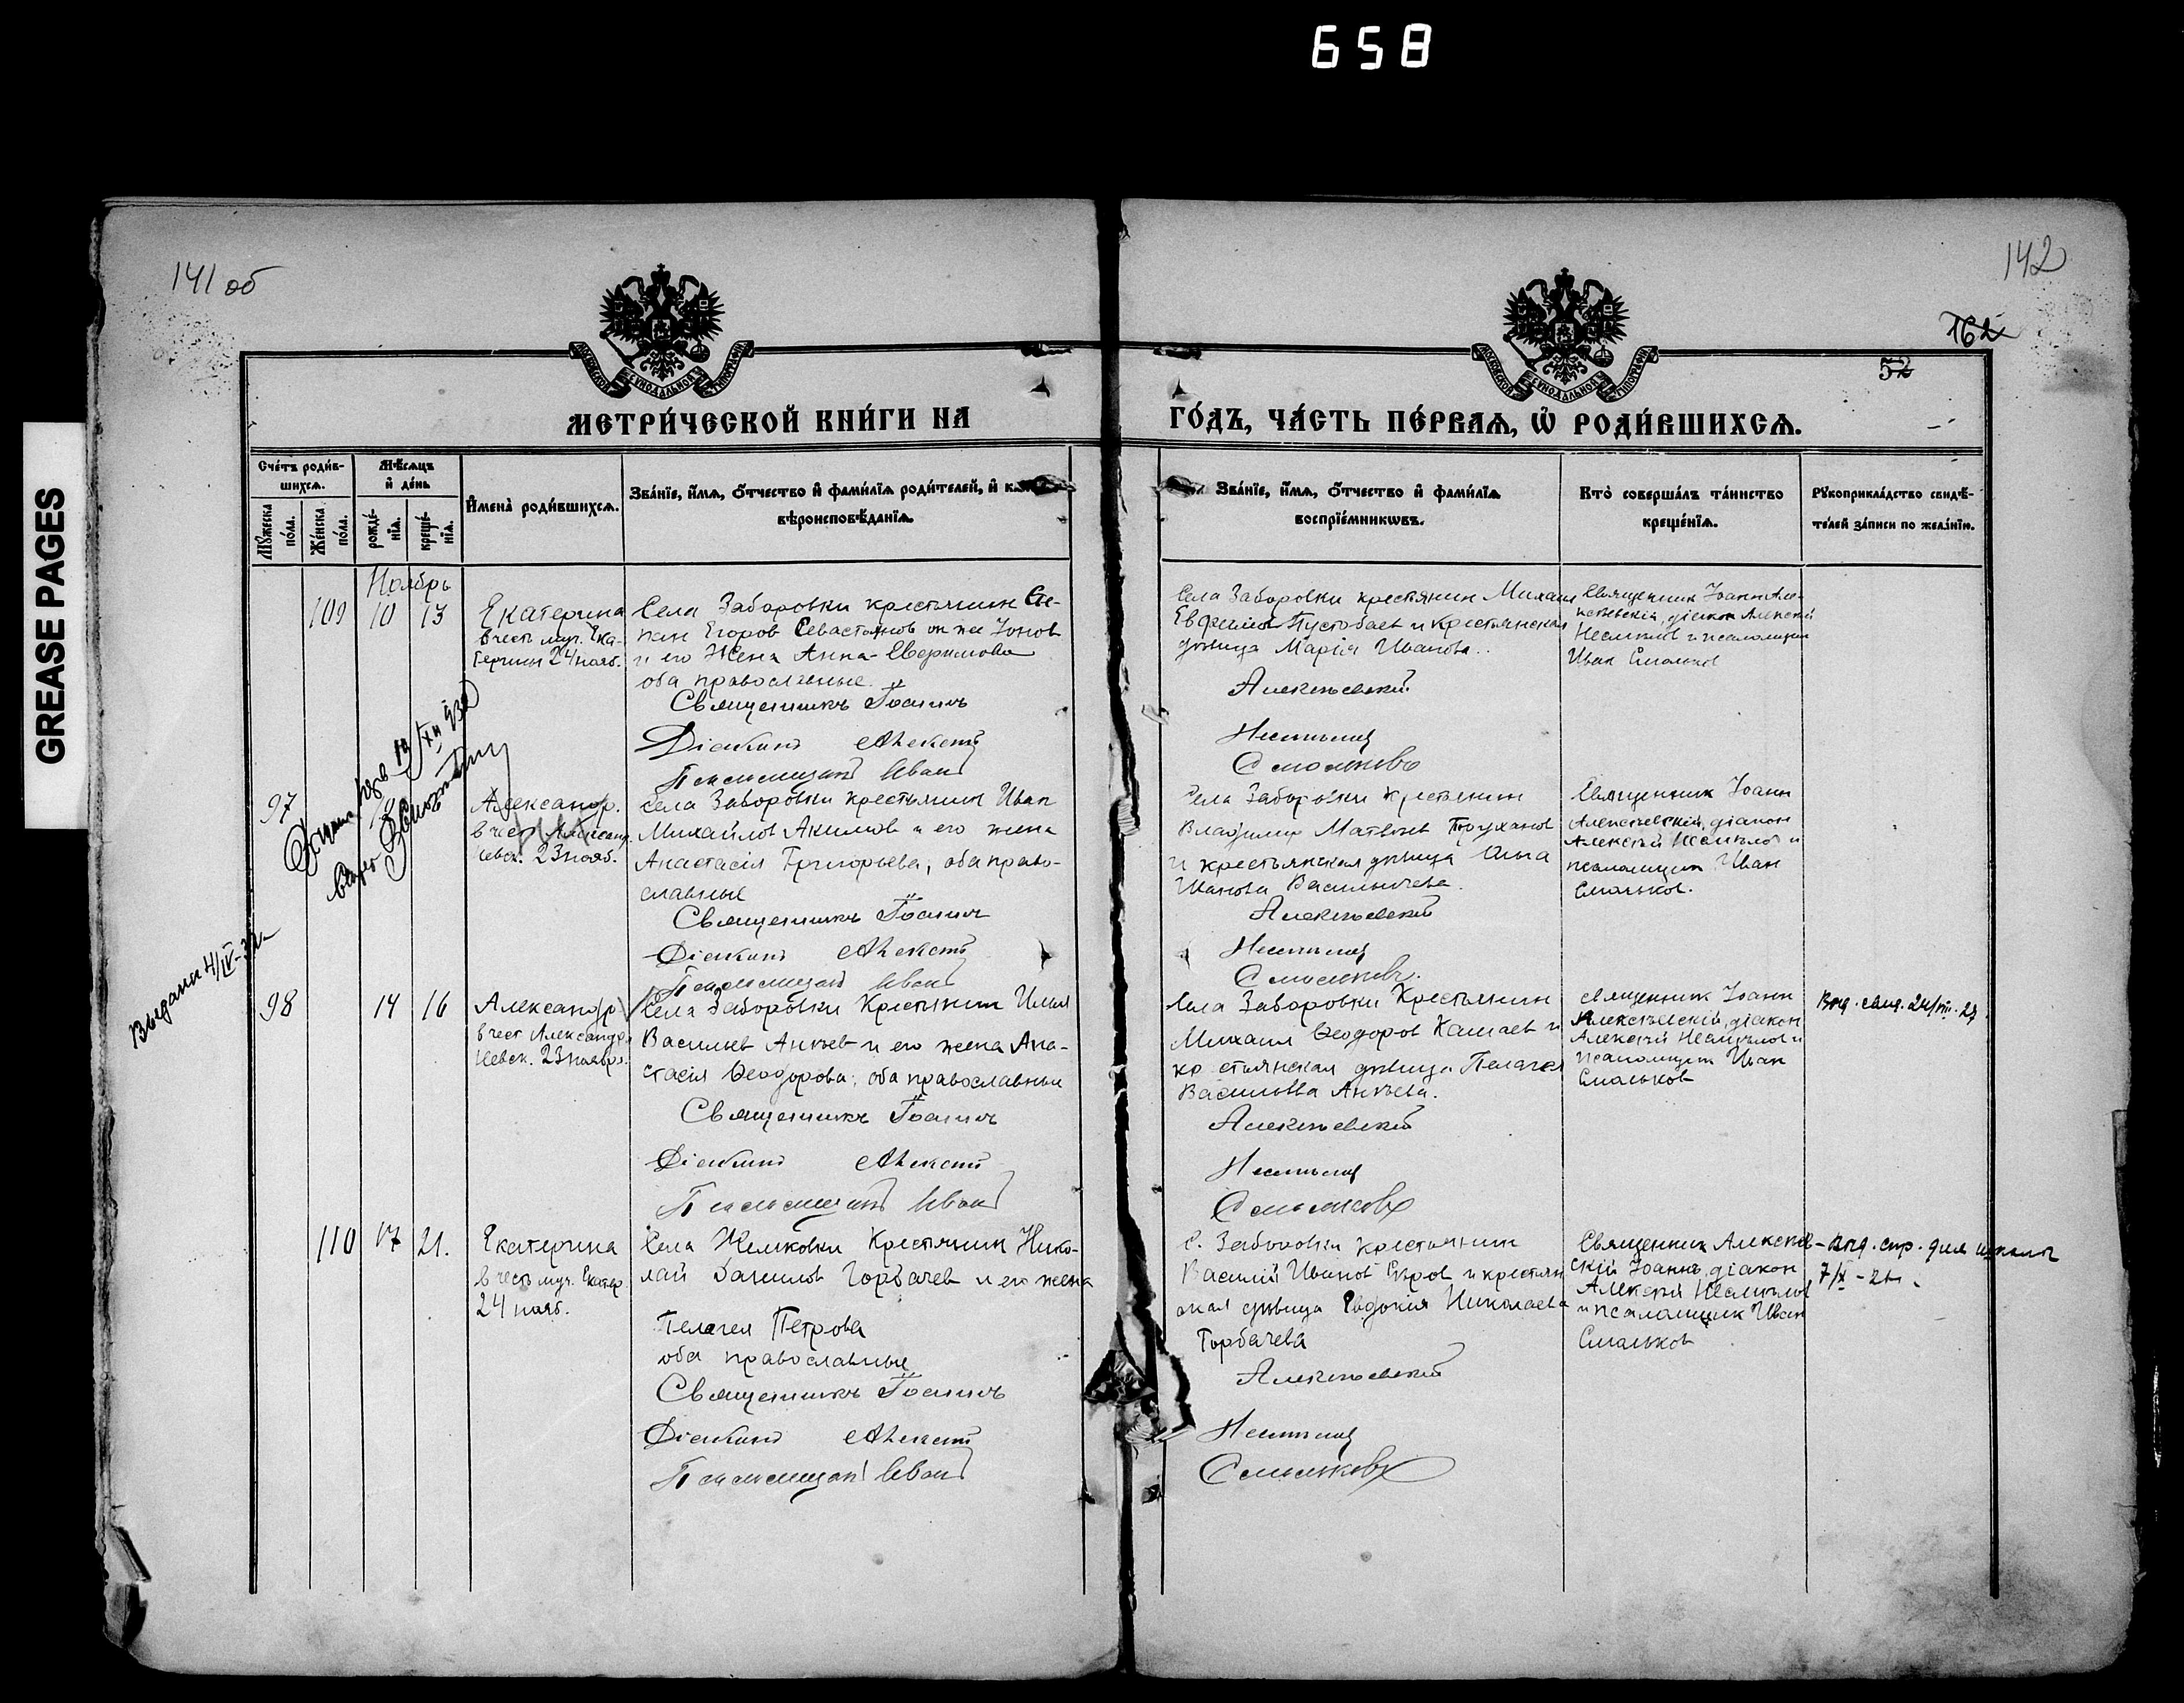 658
GREASE PAGES
141 об
142
162
52
МОСКОВСКОЙ СѴНОДАЛЬНОЙ ТИПОГРАФІИ
МОСКОВСКОЙ СѴНОДАЛЬНОЙ ТИПОГРАФІИ
МЕТРИ́ЧЕСКОЙ КНИ́ГИ НА
ГО́ДЪ, ЧА́СТЬ ПЕ́РВАѦ, Ѽ РОДИ́ВШИХСѦ.
Сче́тъ роди́в-
шихсѧ.
Мꙋжеска
по́ла.
Же́нска
по́ла.
Мѣ́сѧцъ
и҆ де́нь
рожде́-
нїѧ.
креще́-
нїѧ.
И҆мена̀ роди́вшихсѧ.
Зва́нїе, и҆́мѧ, ѻ҆́тчество и҆ фами́лїѧ роди́телей, и҆
вѣроисповѣ́данїѧ.
Зва́нїе, и҆́мѧ, ѻ҆́тчество и҆ фами́лїѧ
воспрїе́мникѡвъ.
Кто̀ соверша́лъ та́инство
креще́нїѧ.
Рꙋкоприкла́дство свидѣ́-
телей за́писи по жела́нїю.
Ноябрь
109 10 13
Екатерина
в честь муч. Ека-
терины 24 нояб.
Села Заборовки крестьянин Сте-
пан Егоров Севастьянов он же Ионов
и его жена Анна Евфимова
оба православные.
Священникъ Іоаннъ
Діаконъ Алексѣй
Псаломщикъ Иванъ
Села Заборовки крестьянин Михаил
Евфимов Пустобаев и крестьянская
дѣвица Марія Иванова.
Алексѣевскій
Несмѣловъ
Смольковъ
Священник Іоанн Але-
ксѣевскій, діакон Алексѣй
Несмѣлов и псаломщик
Иван Смольков
97
Александр.
в чест Александ.
Невск. 23 нояб.
Села Заборовки крестьянин Иван
Михайлов Акимов и его жена
Анастасія Григорьева, оба право-
славные
Священникъ Іоаннъ
Діаконъ Алексѣй
Псаломщикъ Иванъ
Села Заборовки крестьянин
Владимир Матвѣев Труханов
и крестьянская дѣвица
Иванова Васильичева.
Алексѣевскій
Несмѣловъ
Смольковъ.
Священник Іоанн
Алексѣевскій, діакон
Алексѣй Несмѣлов и
псаломщик Иван
Смольков.
Выдана 4/IV-32 г
98 14 16
Александр
в чест Александра
Невск. 23 ноября.
Села Заборовки Крестьянин Илья
Васильев Анчев и его жена Ана-
стасія Ѳеодорова, оба православные
Священникъ Іоаннъ
Діаконъ Алексѣй
Псаломщикъ Иванъ
Села Заборовки Крестьянин
Михаил Ѳеодоров Кашаев и
кр стьянская дѣвица Пелагея
Васильева Анчева.
Алексѣевскій
Несмѣловъ
Смольковъ
священник Іоанн
Алексѣевскій, діакон
Алексѣй Несмѣлов и
псаломщик Иван
Смольков
110 17 21.
Екатерина
в честь муч. Екатер.
24 нояб.
Села Жемковки Крестьянин Нико-
лай Данилов Горбачев и его жена
Пелагея Петрова
оба православные
Священникъ Іоаннъ
Діаконъ Алексѣй
Псаломщикъ Иванъ
С. Заборовки крестьянин
Василій Иванов и крестьян
ская дѣвица Евдокія Николаева
Горбачева
Алексѣевскій
Несмѣловъ
Смольковъ
Священник Алексѣев-
скій Іоаннъ, діакон
Алексѣй Несмѣлов
и псаломщик Иван
Смольков
Выд. спр. для школы